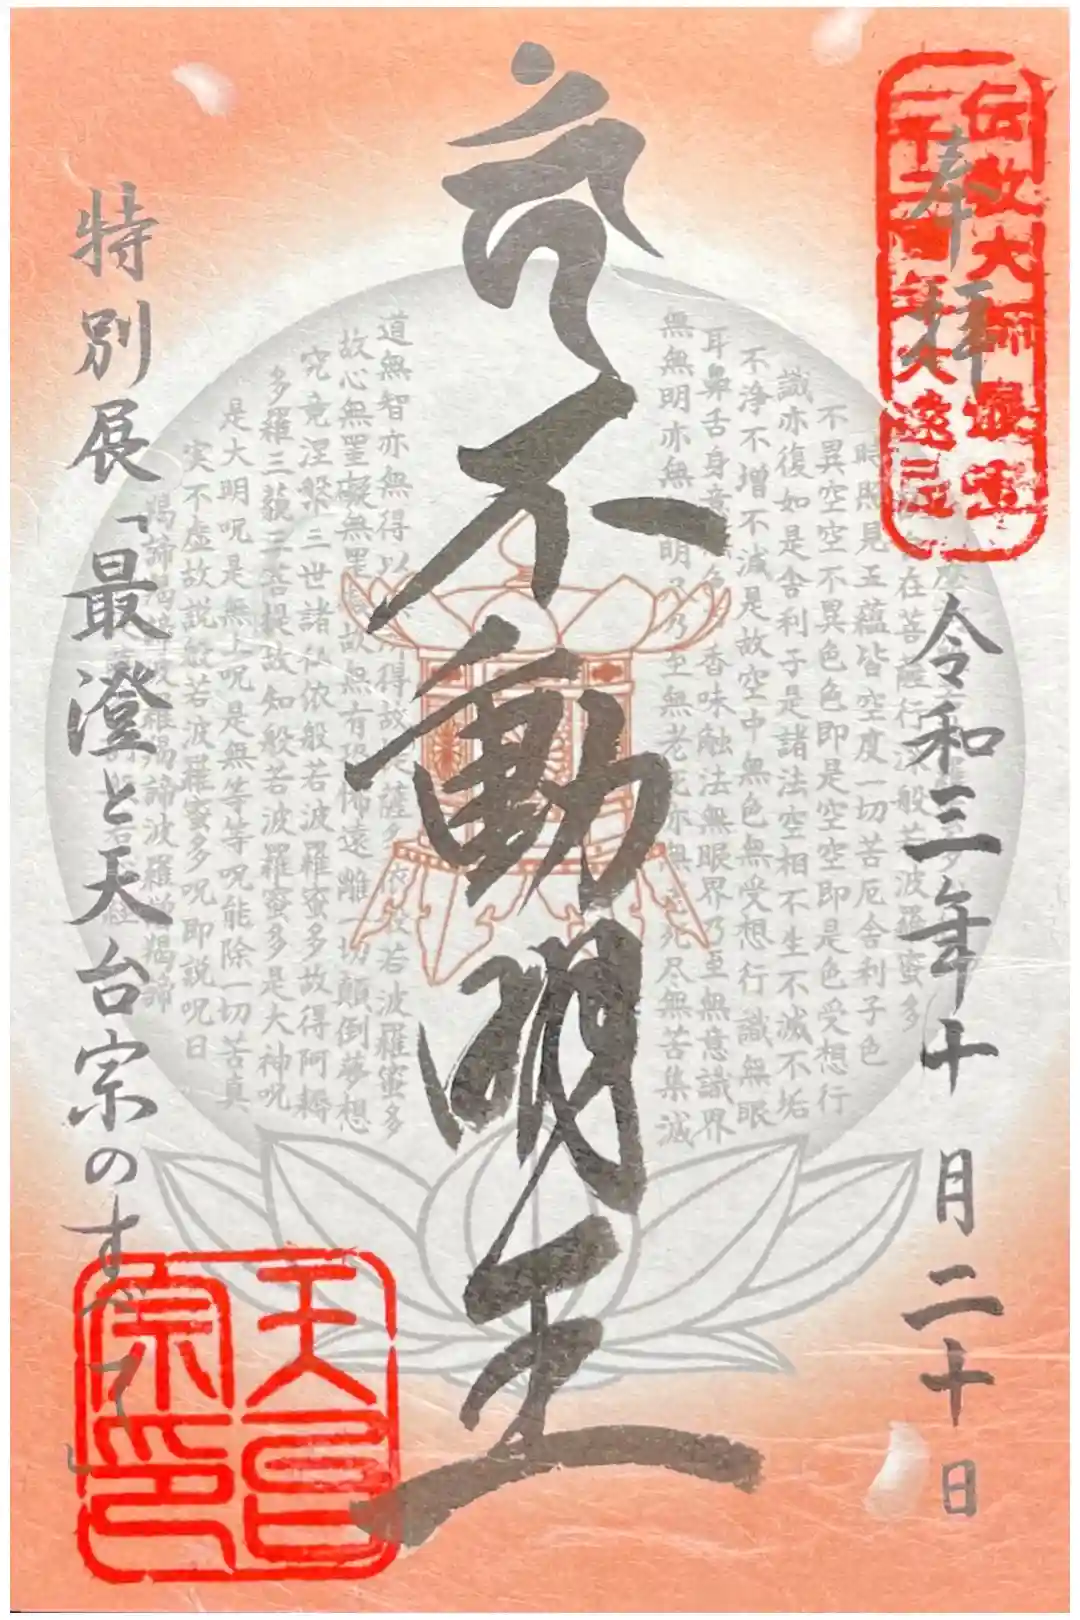 奉拝
伝教大師最澄
一千二百年大遠忌
令和三年十月二十日
不動明王
在菩薩行深般若波羅蜜多
時照見五蘊皆空度一切苦厄舎利子色
不異空空不異色色即是空空即是色受想行
識亦復如是舎利子是諸法空相不生不滅不垢
不浄不増不減是故空中無色無受想行識無眼
耳鼻舌身意 香味触法無眼界乃至無意識界
無無明亦無 明 乃至無老死亦無 死尽無苦集滅
道無智亦無得以 得故 薩多依般若波羅蜜多
故心無罣礙無罣 故無有 怖遠離一切顛倒夢想
究竟涅槃三世諸仏依般若波羅蜜多故得阿耨
多羅三藐三菩提故知般若波羅蜜多是大神呪
是大明呪是無上呪是無等等呪能除一切苦真
実不虚故説般若波羅蜜多呪即説呪曰
羯諦 羅羯諦波羅 羯諦
特別展「最澄と天台宗のすべて」
天台
宗印